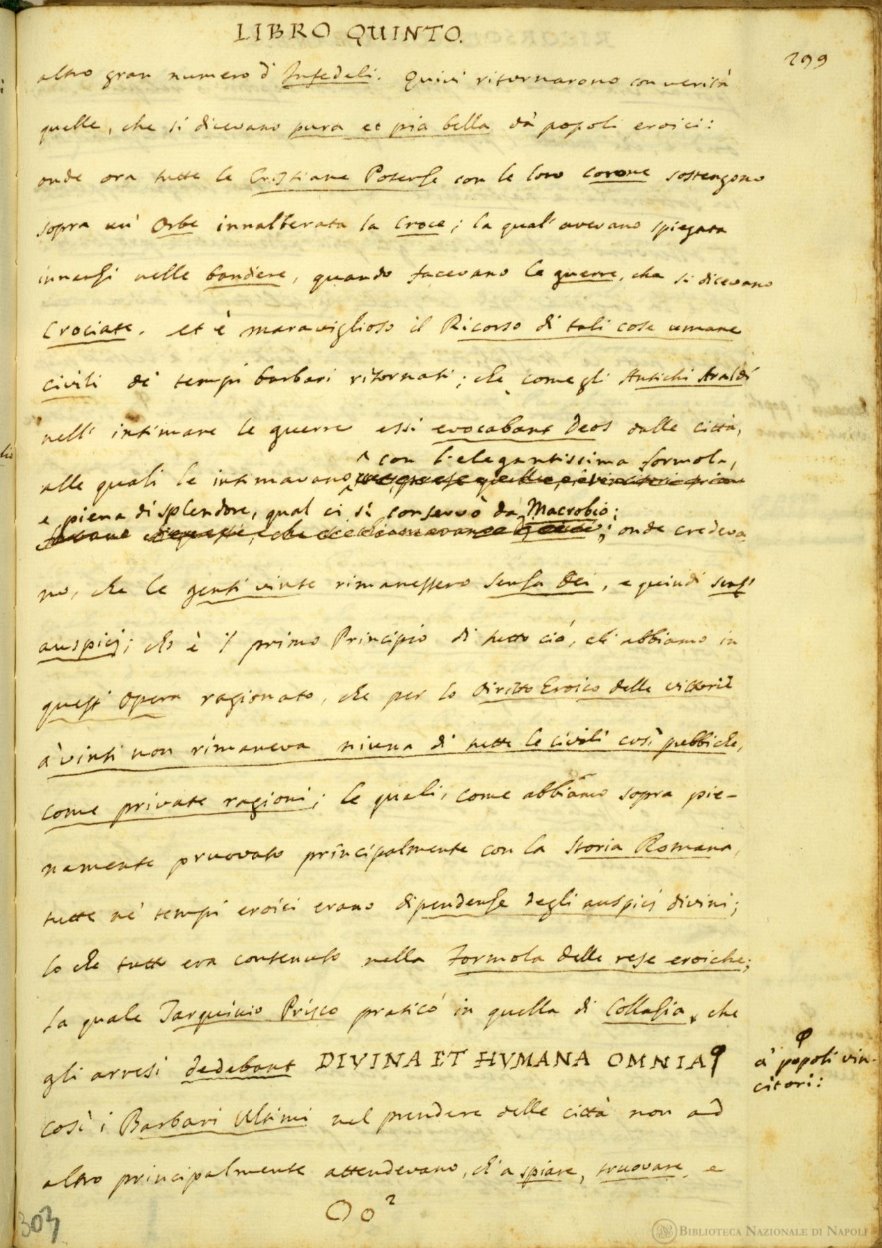 LIBRO QUINTO.
299
altro gran numero d' Infedeli. Quivi ritornarono con verità
quelle, che si dicevano pura et pia bella dà popoli eroici:
onde ora tutte le Cristiane Potenze con le loro corone sostengono
sopra un' Orbe innalberata la Croce; la qual' avevano spiegata
innanzi nelle bandiere, quando facevano le guerre, che si dicevano
Crociate. et è maraviglioso il Ricorso di tali cose umane
civili de' tempi barbari ritornati; che come gli Antichi Araldi
nell' intimare le guerre essi evocabant Deos dalle città,
con l'elegantissima formola,
alle quali le intimavano
e piena di splendore, qual ci si conservò da Macrobio;
onde credeva
no, che le genti vinte rimanessero senza Dei, e quindi senz'
auspicj; ch' è 'l primo Principio di tutto ciò, ch' abbiamo in
quest' Opera ragionato, che per lo Diritto Eroico delle vittorie
à vinti non rimaneva niuna di tutte le civili così pubbliche,
come private ragioni; le quali, come abbiamo sopra pie-
namente pruovato principalmente con la Storia Romana,
tutte ne' tempi eroici erano dipendenze degli auspicj divini;
lo che tutto era contenuto nella Formola delle rese eroiche;
la quale Tarquinio Prisco praticò in quella di Collazia, che
gli arresi dedebant DIVINA ET HVMANA OMNIA
à popoli vin-
citori:
così i Barbari Ultimi nel prendere delle città non ad
altro principalmente attendevano, ch' a spiare, truovare, e
Oo 2
303
BIBLIOTECA NAZIONALE DI NAPOLI